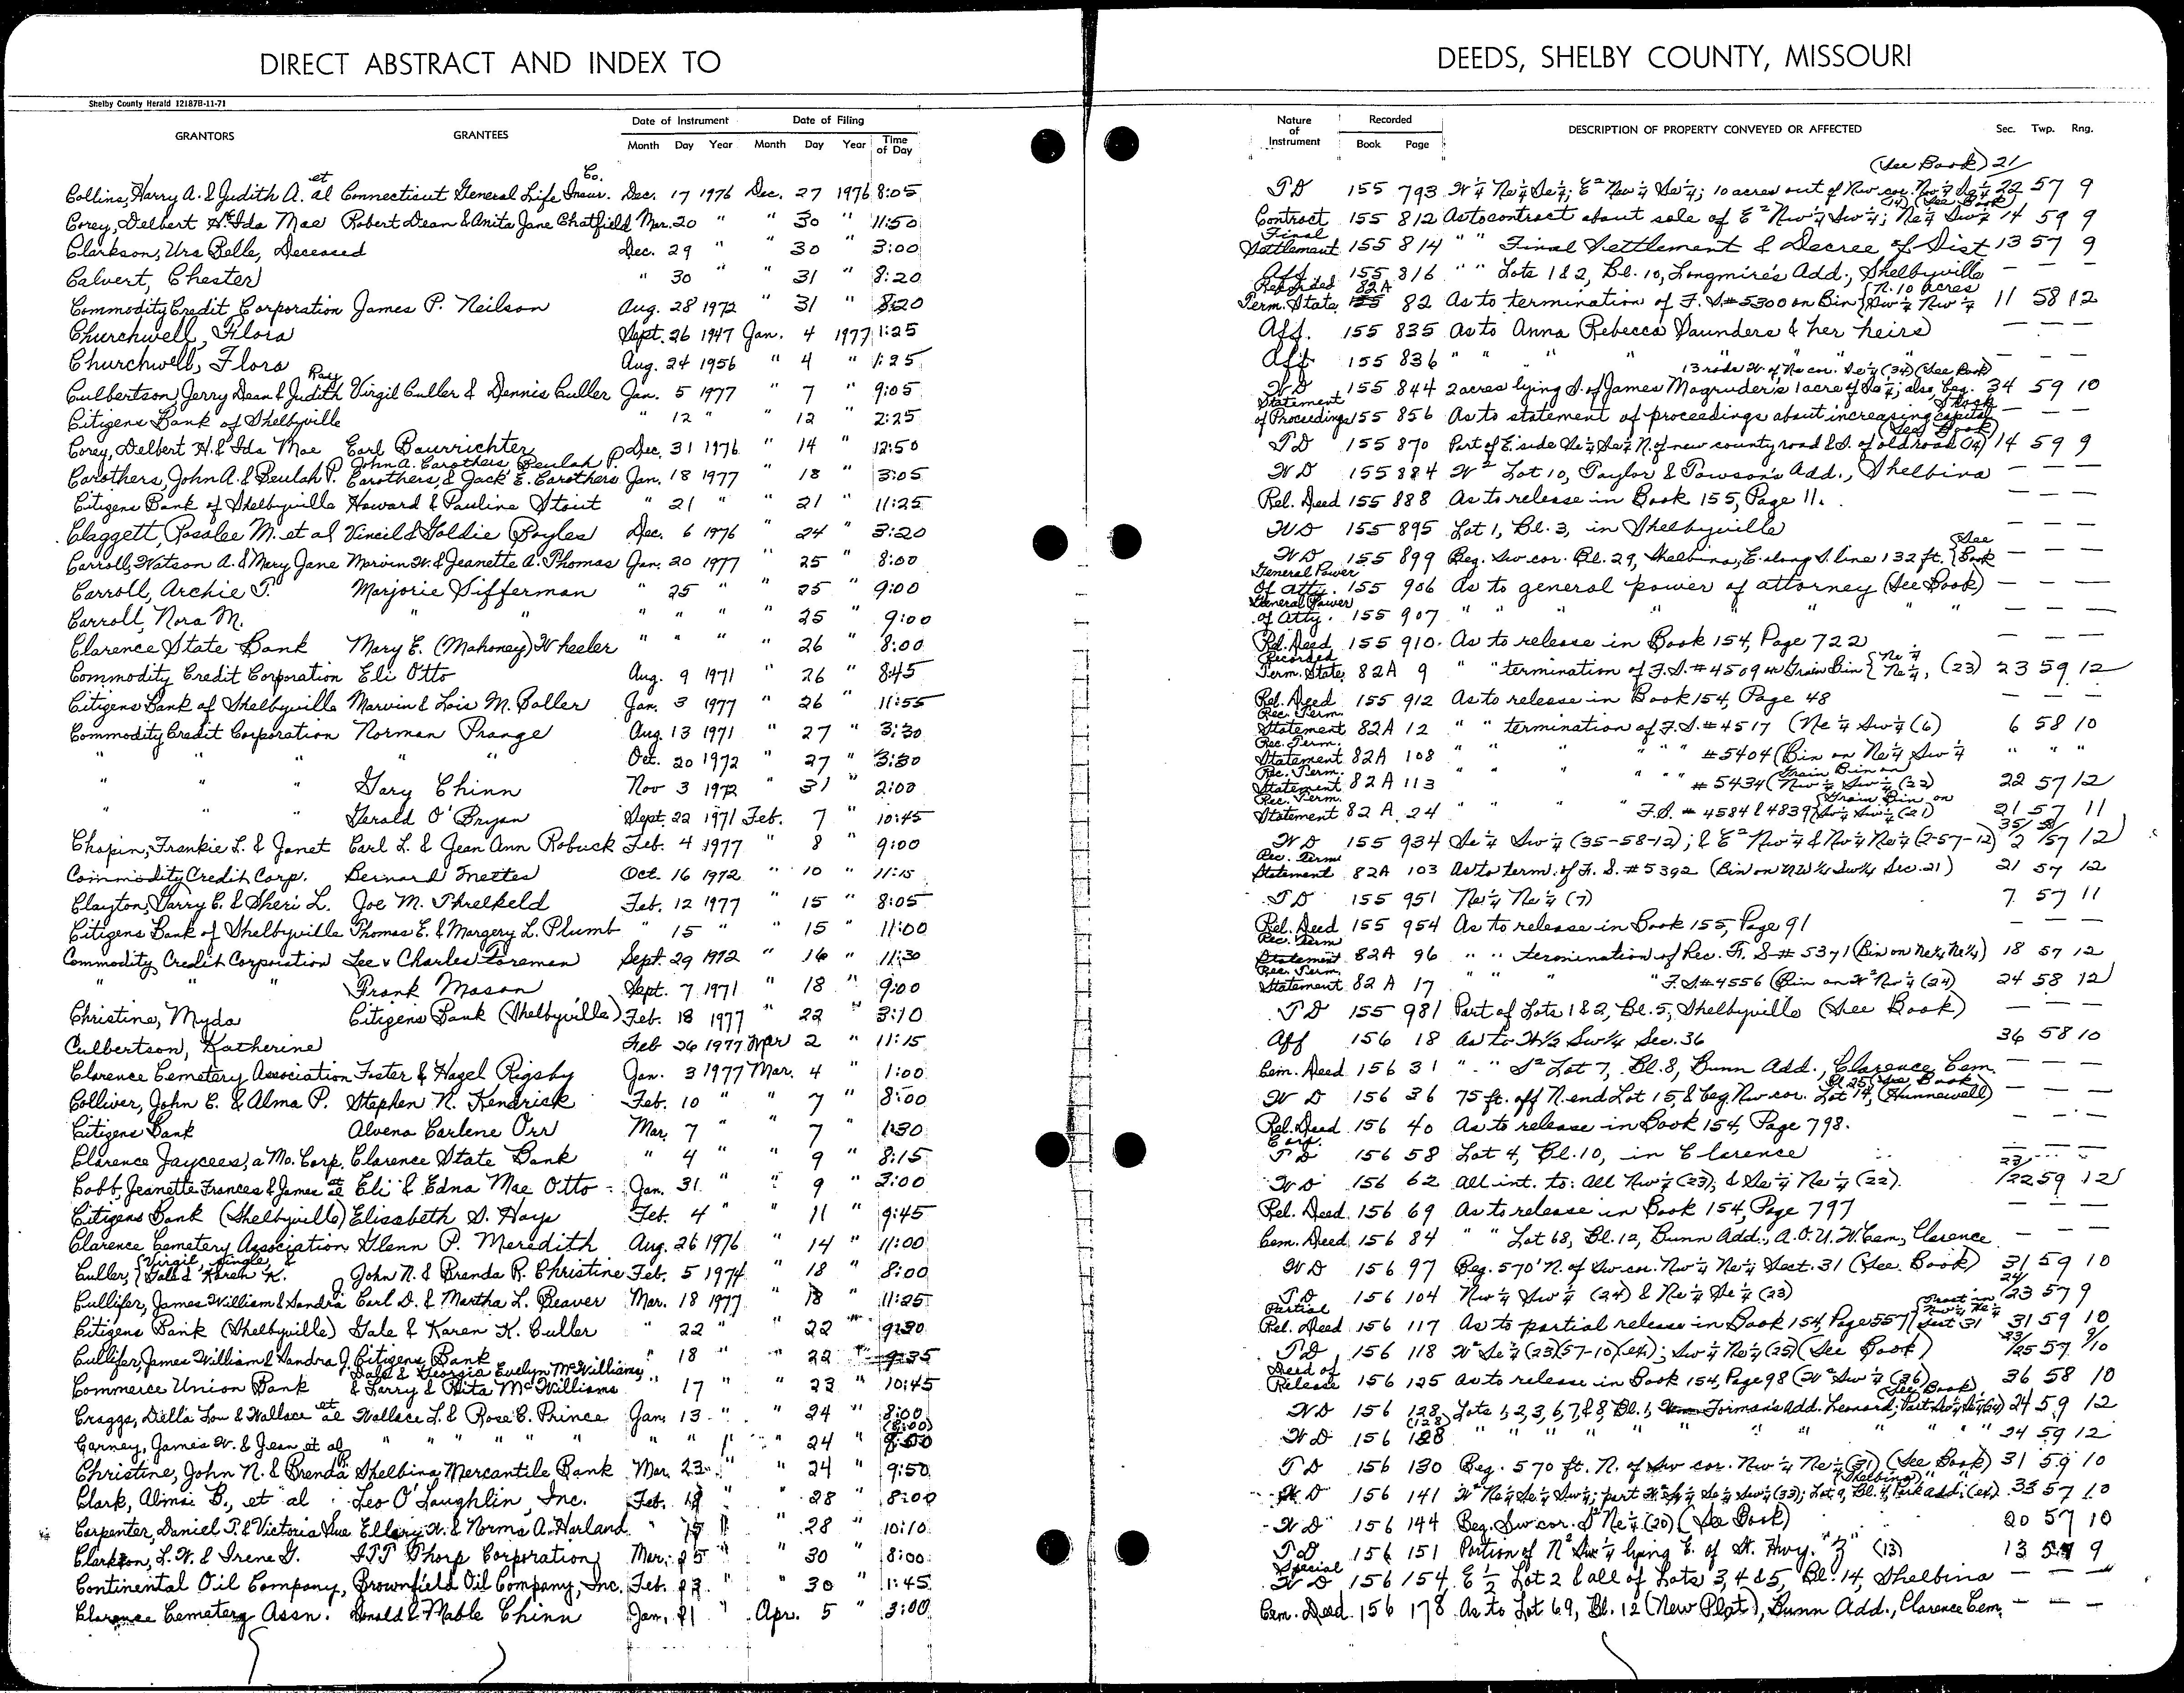 DIRECT ABSTRACT AND INDEX TO
DEEDS, SHELBY COUNTY, MISSOURI
Shelby County Herald 12187B-11-71
GRANTORS GRANTEES Date of Instrument Month Day Year Date of Filing Month Day Year Time of Day
Nature of Instrument Recorded Book Page DESCRIPTION OF PROPERTY CONVEYED OR AFFECTED Sec. Twp. Rng.
Collins, Harry A. & Judith A. et al Connecticut General Life Insur. Co. Dec. 17 1976 Dec. 27 1976 8:05
Corey, Delbert H. & Ida Mae Robert Dean & Anita Jane Chatfield Mar. 20 " " 30 " 11:50
Clarkson, Ura Belle, Deceased Dec. 29 " " 30 " 3:00
Calvert, Chester " 30 " " 31 " 8:20
Commodity Credit Corporation James P. Neilson Aug. 28 1972 " 31 " 8:20
Churchwell, Flora Sept. 26 1947 Jan. 4 1977 1:25
Churchwell, Flora Aug. 24 1956 " 4 " 1:25
Culbertson, Jerry Dean & Judith Ray Virgil Culler & Dennis Culler Jan. 5 1977 " 7 " 9:05
Citizens Bank of Shelbyville " 12 " " 12 " 2:25
Corey, Delbert H. & Ida Mae Earl Baurrichter Dec. 31 1976 " 14 " 12:50
Carothers, John A. & Beulah P. John A. Carothers, Beulah P. Carothers, & Jack E. Carothers Jan. 18 1977 " 18 " 3:05
Citizens Bank of Shelbyville Howard & Pauline Stout " 21 " " 21 " 11:25
Claggett, Rosalee M. et al Vineil & Goldie Boyles Dec. 6 1976 " 24 " 3:20
Carroll, Watson A. & Mary Jane Mervin W. & Jeanette A. Thomas Jan. 20 1977 " 25 " 8:00
Carroll, Archie T. Marjorie Sifferman " 25 " " 25 " 9:00
Carroll, Nora M. " " " " " " 25 " 9:00
Clarence State Bank Mary E. (Mahoney) Wheeler " " " " 26 " 8:00
Commodity Credit Corporation Eli Otto Aug. 9 1971 " 26 " 8:45
Citizens Bank of Shelbyville Marvin & Lois M. Boller Jan. 3 1977 " 26 " 11:55
Commodity Credit Corporation Norman Prange Aug. 13 1971 " 27 " 3:30
" " " " " Oct. 20 1972 " 27 " 3:30
" " " Gary Chinn Nov 3 1972 " 31 " 2:00
" " " Gerald O'Bryan Sept. 22 1971 Feb. 7 " 10:45
Chapin, Frankie L. & Janet Earl L. & Jean Ann Robuck Feb. 4 1977 " 8 " 9:00
Commodity Credit Corp. Bernard Inettes Oct. 16 1972 " 10 " 11:15
Clayton, Larry C. & Sheri L. Joe M. Threlkeld Feb. 12 1977 " 15 " 8:05
Citizens Bank of Shelbyville Thomas E. & Margery L. Plumb " 15 " " 15 " 11:00
Commodity Credit Corporation Lee & Charles Foreman Sept. 29 1972 " 16 " 11:30
" " " Frank Mason Sept. 7 1971 " 18 " 9:00
Christine, Myda Citizens Bank (Shelbyville) Feb. 18 1977 " 22 " 3:10
Culbertson, Katherine Feb 26 1977 Mar 2 " 11:15
Clarence Cemetery Association Foster & Hazel Rigsby Jan. 3 1977 Mar. 4 " 1:00
Colliver, John E. & Alma P. Stephen N. Kendrick Feb. 10 " " 7 " 8:00
Citizens Bank Alvena Carlene Orr Mar. 7 " " 7 " 1:30
Clarence Jaycees, a Mo. Corp. Clarence State Bank " 4 " " 9 " 8:15
Cobb, Jeanette Frances & James et al Eli & Edna Mae Otto Jan. 31 " " 9 " 3:00
Citizens Bank (Shelbyville) Elizabeth S. Hays Feb. 4 " " 11 " 9:45
Clarence Cemetery Association Glenn P. Meredith Aug. 26 1976 " 14 " 11:00
Culler, Virgil, single, & Gale & Karen K. John N. & Brenda R. Christine Feb. 5 1974 " 18 " 8:00
Cullifer, James William & Sandra Carl D. & Martha L. Beaver Mar. 18 1977 " 18 " 11:25
Citizens Bank (Shelbyville) Gale & Karen K. Culler " 22 " " 22 " 9:30
Cullifer, James William & Sandra J. Citizens Bank " 18 " " 22 " 9:35
Commerce Union Bank Dale & Georgia Evelyn McWilliams & Larry & Rita McWilliams " 17 " " 23 " 10:45
Craggs, Della Lou & Wallace et al Wallace L. & Rose C. Prince Jan. 13 " " 24 " 8:00
Carney, James W. & Jean et al " " " " " " " " " " 24 " (8:00)
Christine, John N. & Brenda Shelbina Mercantile Bank Mar. 23 " " 24 " 9:50
Clark, Alma B., et al Leo O'Laughlin, Inc. Feb. 18 " " 28 " 8:00
Carpenter, Daniel T. & Victoria Sue Ellery W. & Norma A. Harland " 15 " " 28 " 10:10
Clarkson, L. W. & Irene G. ITT Thorp Corporation Mar. 25 " " 30 " 8:00
Continental Oil Company, Brownfield Oil Company, Inc. Feb. 23 " " 30 " 1:45
Clarence Cemetery Assn. Donald & Mable Chinn Jan. 21 " Apr. 5 " 3:00
(See Book) 21/
TD 155 793 W¼ Ne¼ Se¼; E² Nw¼ Se¼; 10 acres out of Nw cor. Nw¼ Se¼ 22 57 9
Contract 155 812 As to contract about sale of E² Nw¼ Sw¼; Ne¼ Sw¼ (14) (See Book) 14 59 9
Final Settlement 155 814 " " Final Settlement & Decree of Dist 13 57 9
Aff. 155 816 " " Lots 1 & 2, Bl. 10, Longmire's Add., Shelbyville — — —
Recorded Term. State. 82A 82 As to termination of F.S. #5300 on Bin {N. 10 acres Sw¼ Nw¼ 11 58 12
Aff. 155 835 As to Anna Rebecca Saunders & her heirs — — —
Aff. 155 836 " " " " " " — — —
WD 155 844 2 acres lying S. of James Magruder's 1 acre of Se¼; also, beg. 13 rods W. of Ne cor. Se¼ (34) (See Book) 34 59 10
Statement of Proceedings 155 856 As to statement of proceedings about increasing capital Stock — — —
TD 155 870 Part of E. side Se¼ Se¼ N. of new county road & S. of old road (14) (See Book) 14 59 9
WD 155 884 W² Lot 10, Taylor & Towson's Add., Shelbina — — —
Rel. Deed 155 888 As to release in Book 155, Page 11. — — —
WD 155 895 Lot 1, Bl. 3, in Shelbyville — — —
WD 155 899 Beg. Sw cor. Bl. 29, Shelbina, E. along S. line 132 ft. {See Book — — —
General Power of Atty. 155 906 As to general power of attorney (See Book) — — —
General Power of Atty. 155 907 " " " " " " " — — —
Rel. Deed 155 910 As to release in Book 154, Page 722 — — —
Recorded Term. State. 82A 9 " " termination of F.S. #4509 on Grain Bin {Ne¼ Ne¼, (23) 23 59 12
Rel. Deed 155 912 As to release in Book 154, Page 48 — — —
Rec. Term. Statement 82A 12 " " termination of F.S. #4517 (Ne¼ Sw¼ (6) 6 58 10
Rec. Term. Statement 82A 108 " " " " " " #5404 (Bin on Ne¼ Sw¼ " " "
Rec. Term. Statement 82A 113 " " " " " " #5434 (Grain Bin on Nw¼ Sw¼ (22) 22 57 12
Rec. Term. Statement 82A 24 " " " " F.S. #4584 & 4839 {Grain Bin on Sw¼ Sw¼ (21) 21 57 11
WD 155 934 Se¼ Sw¼ (35-58-12); & E² Nw¼ & Nw¼ Ne¼ (2-57-12) 35/2 58/57 12
Rec. Term Statement 82A 103 As to term. of F.S. #5392 (Bin on NW¼ Sw¼ Sec. 21) 21 57 12
TD 155 951 Ne¼ Ne¼ (7) 7 57 11
Rel. Deed 155 954 As to release in Book 155, Page 91 — — —
Rec. Term Statement 82A 96 " " termination of Rec. F.S # 5371 (Bin on Ne¼ Ne¼) 18 57 12
Rec. Term. Statement 82A 17 " " " " F.S. #4556 (Bin on W² Nw¼ (24) 24 58 12
TD 155 981 Part of Lots 1 & 2, Bl. 5, Shelbyville (See Book) — — —
Aff 156 18 As to W½ Sw¼ Sec. 36 36 58 10
Cem. Deed 156 31 " " S² Lot 7, Bl. 8, Bunn Add., Clarence Cem. — — —
WD 156 36 75 ft. off N. end Lot 15, & beg. Nw cor. Lot 14, Bl 25 (See Book) (Hunnewell) — — —
Rel. Deed 156 40 As to release in Book 154, Page 798. — — —
Corp. TD 156 58 Lot 4, Bl. 10, in Clarence — — —
WD 156 62 All int. to: All Nw¼ (23), & Se¼ Ne¼ (22). 23/22 59 12
Rel. Deed 156 69 As to release in Book 154, Page 797 — — —
Cem. Deed 156 84 " " Lot 68, Bl. 12, Bunn Add., A.O.U.W. Cem., Clarence — — —
WD 156 97 Beg. 570' N. of Sw cor. Nw¼ Ne¼ Sect. 31 (See Book) 31 59 10
TD 156 104 Nw¼ Sw¼ (24) & Ne¼ Se¼ (23) 24/23 57 9
Partial Rel. Deed 156 117 As to partial release in Book 154, Page 557 {Tract in Nw¼ Ne¼ Sect 31 31 59 10
TD 156 118 W² Se¼ (23)(57-10)(ex); Sw¼ Ne¼ (25) (See Book) 23/25 57 9/10
Deed of Release 156 125 As to release in Book 154, Page 98 (W² Sw¼ (36) 36 58 10
WD 156 128 Lots 1, 2, 3, 6, 7, & 8, Bl. 1, Forman's Add. Leonard; Part (See Book) 24 59 12
WD 156 (128) " " " " " " " " " 24 59 12
TD 156 130 Beg. 570 ft. N. of Sw cor. Nw¼ Ne¼ (31) (See Book) 31 59 10
WD 156 141 W² Ne¼ Se¼ Sw¼; part Se¼ Sw¼ (33); Lot 9, Bl. 4, Park add. (Shelbina) (ex) 33 57 10
WD 156 144 Beg. Sw cor. S² Ne¼ (20) (See Book) 20 57 10
TD 156 151 Portion of N² Sw¼ lying E. of St. Hwy. "Z" (13) 13 57 9
Special WD 156 154 E½ Lot 2 & all of Lots 3, 4 & 5, Bl. 14, Shelbina — — —
Cem. Deed 156 178 As to Lot 69, Bl. 12 (New Plat), Bunn Add., Clarence Cem. — — —